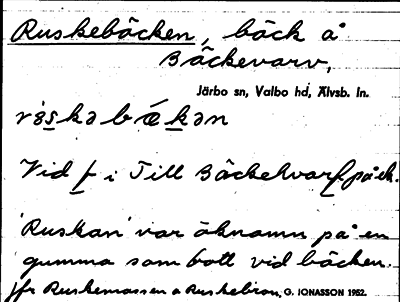 Ruskebäcken, bäck å
Bäckevarv,
Järbo sn, Valbo hd, Älvsb. ln.
Vid f i Till Bäckekvarf på ek.
'Ruskan' var öknamn på en
gumma som bott vid bäcken.
Jfr Ruskemossen o Ruskebron, G. JONASSON 1952.